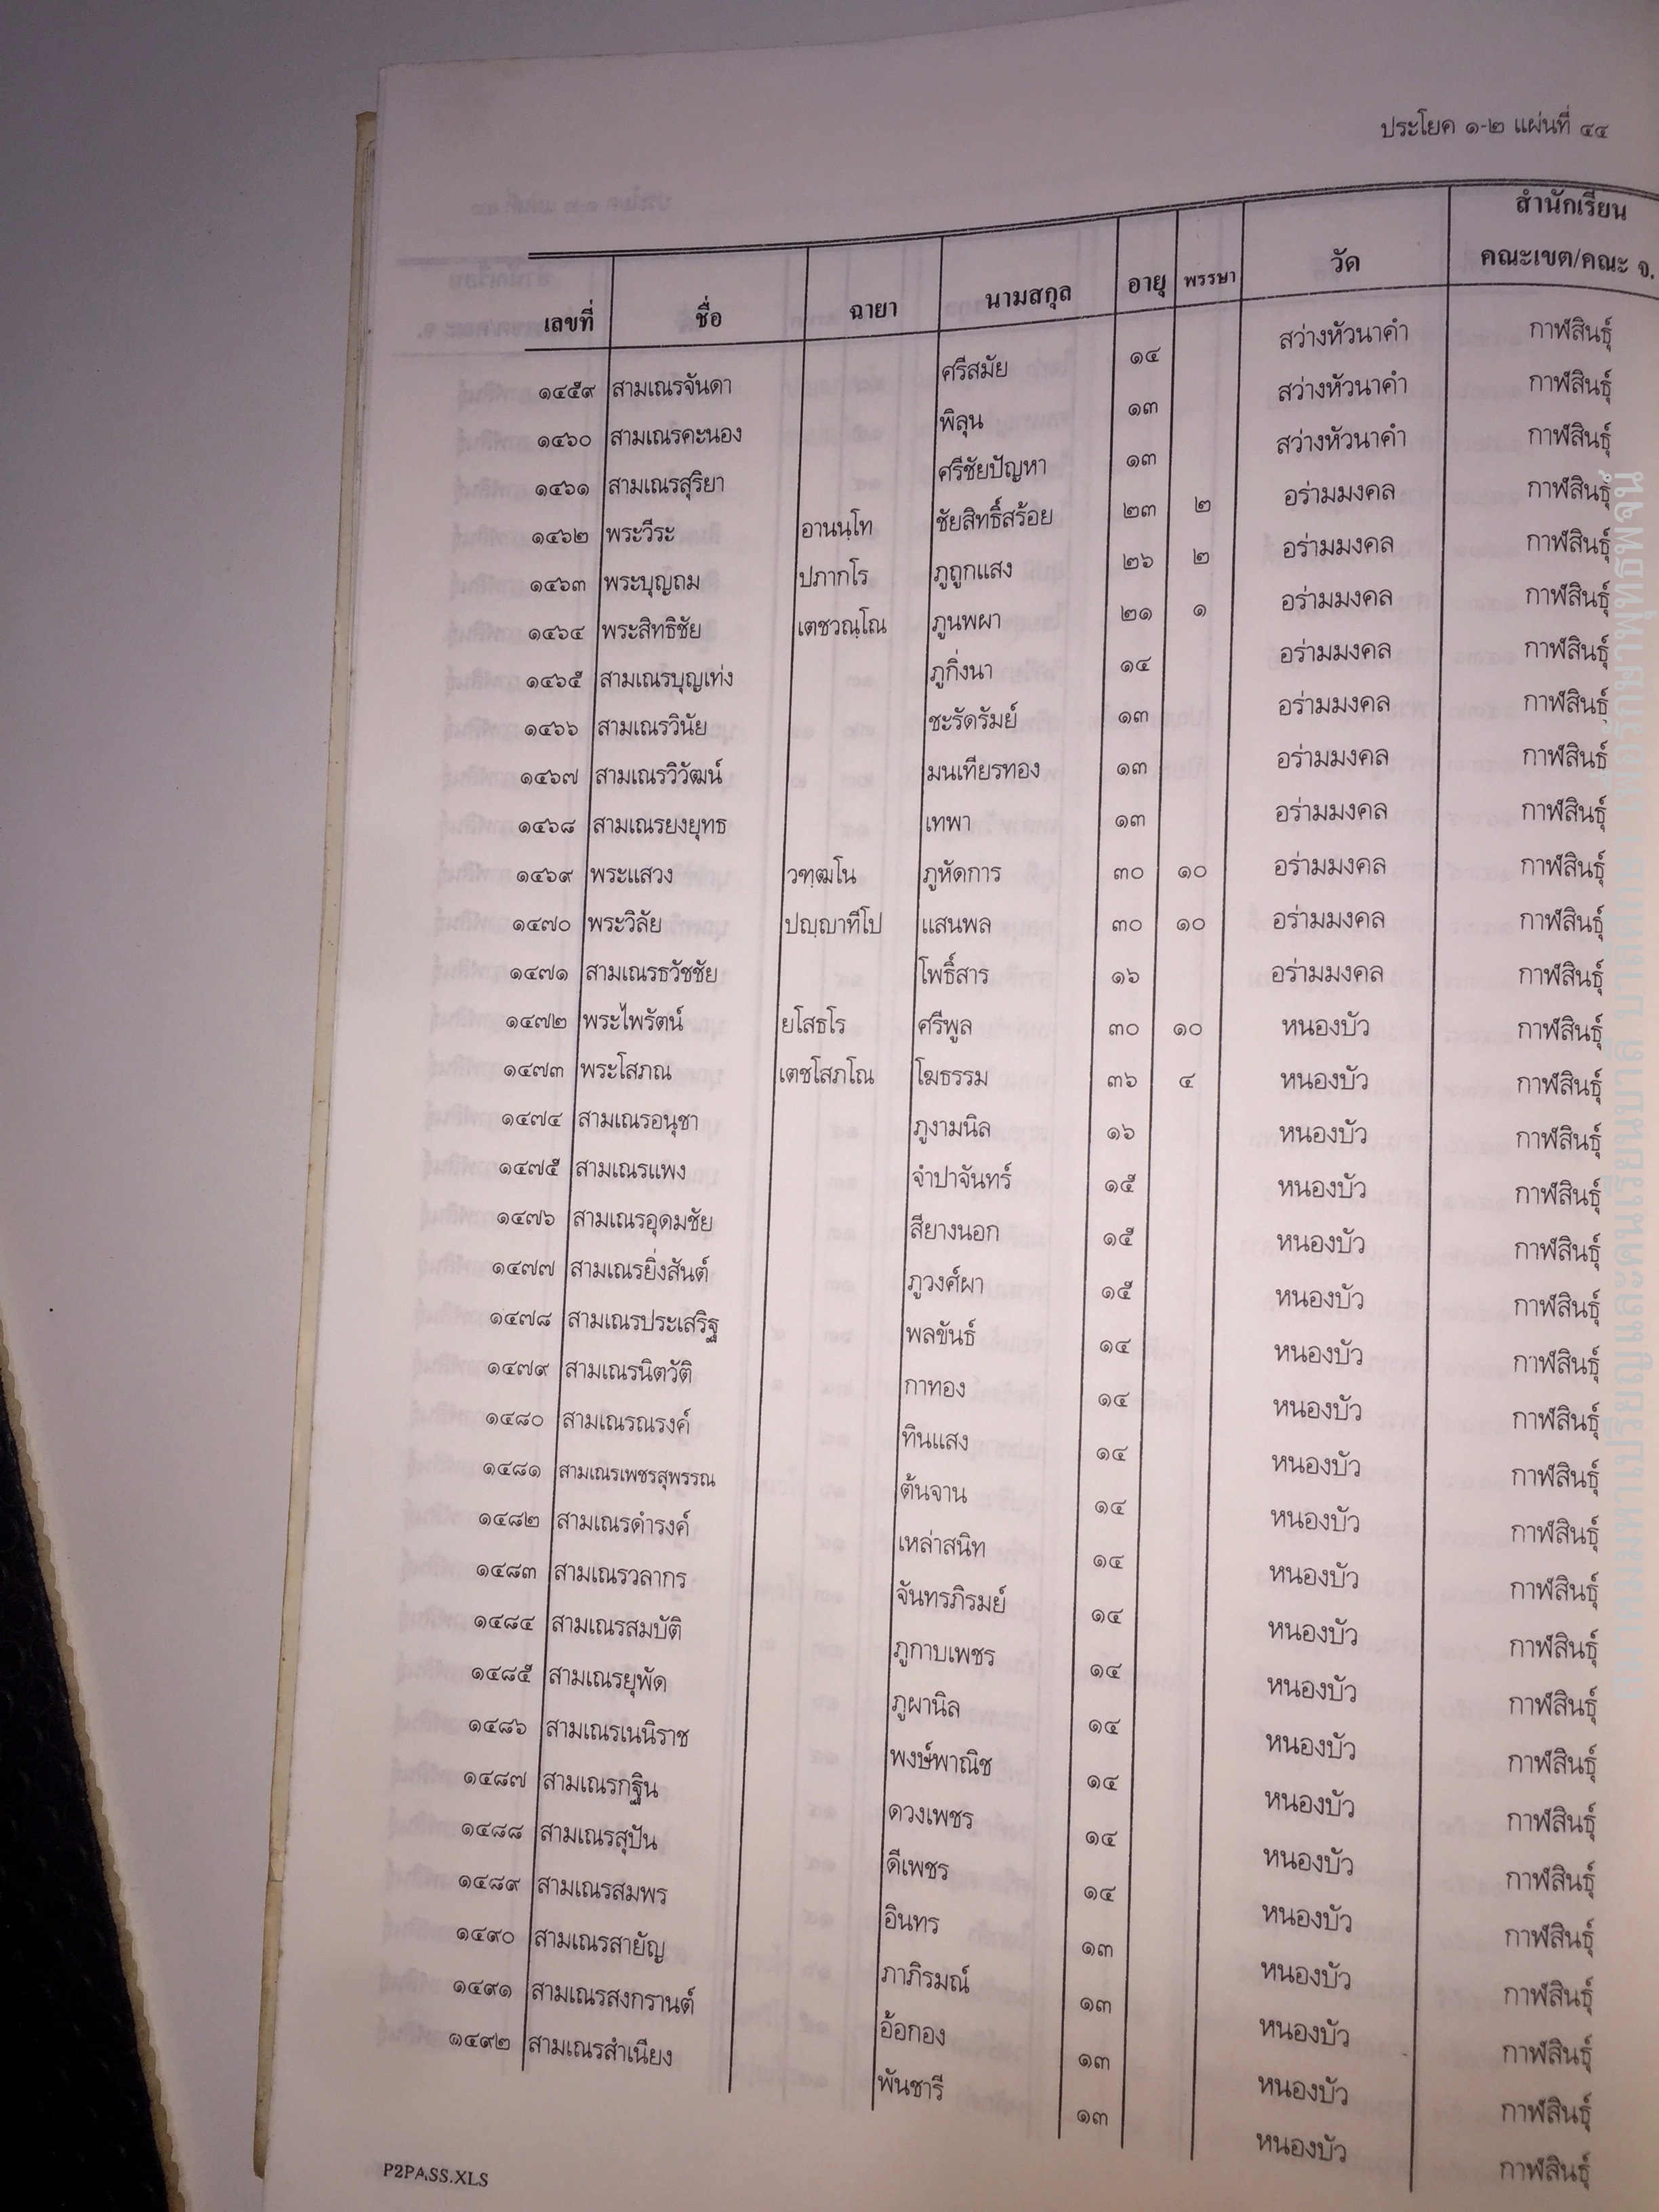 ประโยค ๑-๒ แผ่นที่ ๔๔
เลขที่ ชื่อ ฉายา นามสกุล อายุ พรรษา วัด สำนักเรียน คณะเขต/คณะ จ.
๑๔๕๙ สามเณรจันดา ศรีสมัย ๑๔ สว่างหัวนาคำ กาฬสินธุ์
๑๔๖๐ สามเณรคะนอง พิลุน ๑๓ สว่างหัวนาคำ กาฬสินธุ์
๑๔๖๑ สามเณรสุริยา ศรีชัยปัญหา ๑๓ สว่างหัวนาคำ กาฬสินธุ์
๑๔๖๒ พระวีระ อานนฺโท ชัยสิทธิ์สร้อย ๒๓ ๒ อร่ามมงคล กาฬสินธุ์
๑๔๖๓ พระบุญถม ปภากโร ภูถูกแสง ๒๖ ๒ อร่ามมงคล กาฬสินธุ์
๑๔๖๔ พระสิทธิชัย เตชวณฺโณ ภูนพผา ๒๑ ๑ อร่ามมงคล กาฬสินธุ์
๑๔๖๕ สามเณรบุญเท่ง ภูกิ่งนา ๑๔ อร่ามมงคล กาฬสินธุ์
๑๔๖๖ สามเณรวินัย ชะรัดรัมย์ ๑๓ อร่ามมงคล กาฬสินธุ์
๑๔๖๗ สามเณรวิวัฒน์ มนเทียรทอง ๑๓ อร่ามมงคล กาฬสินธุ์
๑๔๖๘ สามเณรยงยุทธ เทพา ๑๓ อร่ามมงคล กาฬสินธุ์
๑๔๖๙ พระแสวง วฑฺฒโน ภูหัดการ ๓๐ ๑๐ อร่ามมงคล กาฬสินธุ์
๑๔๗๐ พระวิลัย ปญฺญาทีโป แสนพล ๓๐ ๑๐ อร่ามมงคล กาฬสินธุ์
๑๔๗๑ สามเณรธวัชชัย โพธิ์สาร ๑๖ อร่ามมงคล กาฬสินธุ์
๑๔๗๒ พระไพรัตน์ ยโสธโร ศรีพูล ๓๐ ๑๐ หนองบัว กาฬสินธุ์
๑๔๗๓ พระโสภณ เตชโสภโณ โฆธรรม ๓๖ ๔ หนองบัว กาฬสินธุ์
๑๔๗๔ สามเณรอนุชา ภูงามนิล ๑๖ หนองบัว กาฬสินธุ์
๑๔๗๕ สามเณรแพง จำปาจันทร์ ๑๕ หนองบัว กาฬสินธุ์
๑๔๗๖ สามเณรอุดมชัย สียางนอก ๑๕ หนองบัว กาฬสินธุ์
๑๔๗๗ สามเณรยิ่งสันต์ ภูวงศ์ผา ๑๕ หนองบัว กาฬสินธุ์
๑๔๗๘ สามเณรประเสริฐ พลขันธ์ ๑๔ หนองบัว กาฬสินธุ์
๑๔๗๙ สามเณรนิตวัติ กาทอง ๑๔ หนองบัว กาฬสินธุ์
๑๔๘๐ สามเณรณรงค์ ทินแสง ๑๔ หนองบัว กาฬสินธุ์
๑๔๘๑ สามเณรเพชรสุพรรณ ต้นจาน ๑๔ หนองบัว กาฬสินธุ์
๑๔๘๒ สามเณรดำรงค์ เหล่าสนิท ๑๔ หนองบัว กาฬสินธุ์
๑๔๘๓ สามเณรวลากร จันทรภิรมย์ ๑๔ หนองบัว กาฬสินธุ์
๑๔๘๔ สามเณรสมบัติ ภูกาบเพชร ๑๔ หนองบัว กาฬสินธุ์
๑๔๘๕ สามเณรยุพัด ภูผานิล ๑๔ หนองบัว กาฬสินธุ์
๑๔๘๖ สามเณรเนนิราช พงษ์พาณิช ๑๔ หนองบัว กาฬสินธุ์
๑๔๘๗ สามเณรกฐิน ดวงเพชร ๑๔ หนองบัว กาฬสินธุ์
๑๔๘๘ สามเณรสุปัน ดีเพชร ๑๔ หนองบัว กาฬสินธุ์
๑๔๘๙ สามเณรสมพร อินทร ๑๓ หนองบัว กาฬสินธุ์
๑๔๙๐ สามเณรสายัญ ภาภิรมณ์ ๑๓ หนองบัว กาฬสินธุ์
๑๔๙๑ สามเณรสงกรานต์ อ้อกอง ๑๓ หนองบัว กาฬสินธุ์
๑๔๙๒ สามเณรสำเนียง พันชารี ๑๓ หนองบัว กาฬสินธุ์
P2PASS.XLS